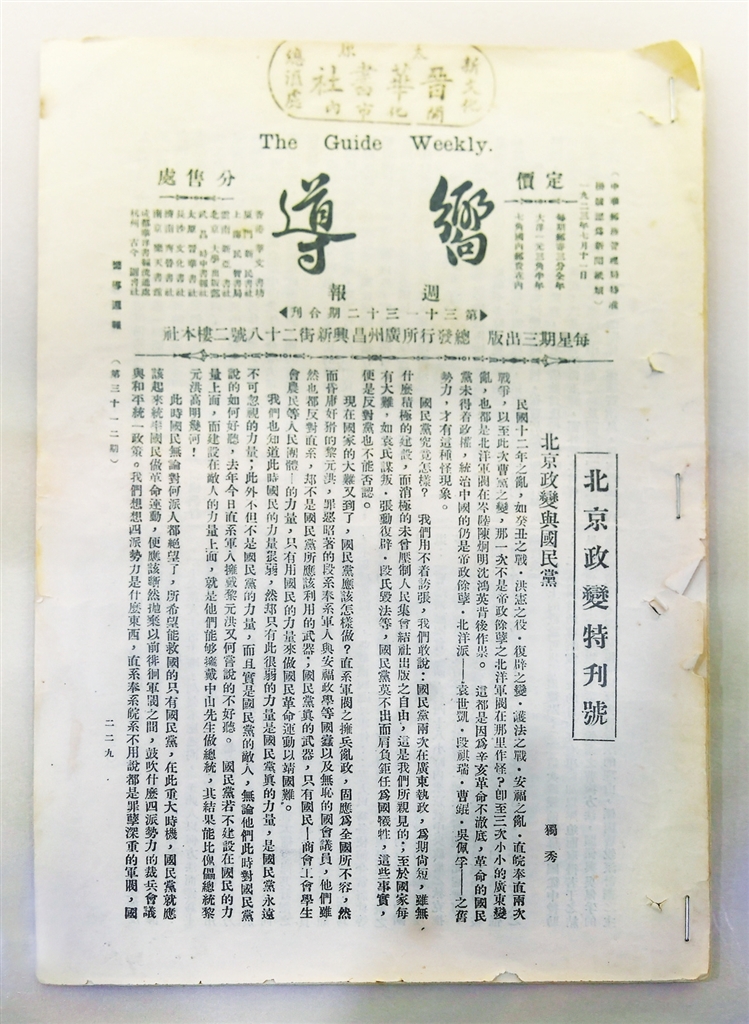 太原
新文化
晉華書社
開化市內
總滙處
The Guide Weekly.
(中華郵務管理局特准
掛號認爲新聞紙類)
一九二三年七月十一日
定價
每期銅圓三分全年
大洋一元三角半年
七角國內郵費在內
嚮導
週報
第三十一三十二期合刊
分售處
香港 萃文書坊
上海 民智書局
北京 大學出版部
武昌 時中書報社
太原 晉華書社
長沙 文化書社
濟南 齊魯書社
南京 樂天書館
成都華洋書報流通處
杭州 古今圖書社
每星期三出版 總發行所廣州昌興新街二十八號二樓本社
北京政變特刊號
北京政變與國民黨
獨秀
民國十二年之亂，如癸丑之戰，洪憲之役，復辟之變，護法之戰，安福之亂，直皖奉直兩次
戰爭，以至此次曹黨之變，那一次不是帝政餘孽之北洋軍閥在那里作怪？卽至三次小小的廣東變
亂，也都是北洋軍閥在岑陸陳炯明沈鴻英背後作祟。 這都是因爲辛亥革命不澈底，革命的國民
黨未得着政權，統治中國的仍是帝政餘孽，北洋派——袁世凱，段祺瑞，曹錕，吳佩孚——之舊
勢力，才有這種怪現象。
國民黨究竟怎樣？ 我們用不着誇張，我們敢說：國民黨兩次在廣東執政，爲期尙短，雖無
什麼積極的建設，而消極的未曾壓制人民集會結社出版之自由，這是我們所親見的；至於國家每
有大難，如袁氏謀叛，張勳復辟，段氏毀法等，國民黨莫不出而肩負鉅任爲國犧牲，這些事實，
便是反對黨也不能否認。
現在國家的大難又到了，國民黨應該怎樣做？直系軍閥之擁兵亂政，固應爲全國所不容，然
而昏庸奸猾的黎元洪，罪惡昭著的段系奉系軍人與安福政學等國蠹以及無恥的國會議員，他們雖
然也都反對直系，却不是國民黨所應該利用的武器；國民黨眞的武器，只有國民—商會工會學生
會農民等人民團體—的力量，只有用國民的力量來做國民革命運動以靖國難。
我們也知道此時國民的力量很弱，然却只有此很弱的力量是國民黨眞的力量，是國民黨永遠
不可忽視的力量；此外不但不是國民黨的力量，而且實是國民黨的敵人，無論他們此時對國民黨
說的如何好聽，去年今日直系軍人擁戴黎元洪又何嘗說的不好聽。 國民黨若不建設在國民的力
量上面，而建設在敵人的力量上面，就是他們能够擁戴中山先生做總統，其結果能比傀儡總統黎
元洪高明幾何！
此時國民無論對何派人都絕望了，所希望能救國的只有國民黨，在此重大時機，國民黨就應
該起來統率國民做革命運動，便應該斷然拋棄以前徘徊軍閥之間，鼓吹什麼四派勢力的裁兵會議
與和平統一政策。我們想想四派勢力是什麼東西，直系奉系皖系不用說都是罪孽深重的軍閥，國
嚮導週報
(第三十一二期)
二二九